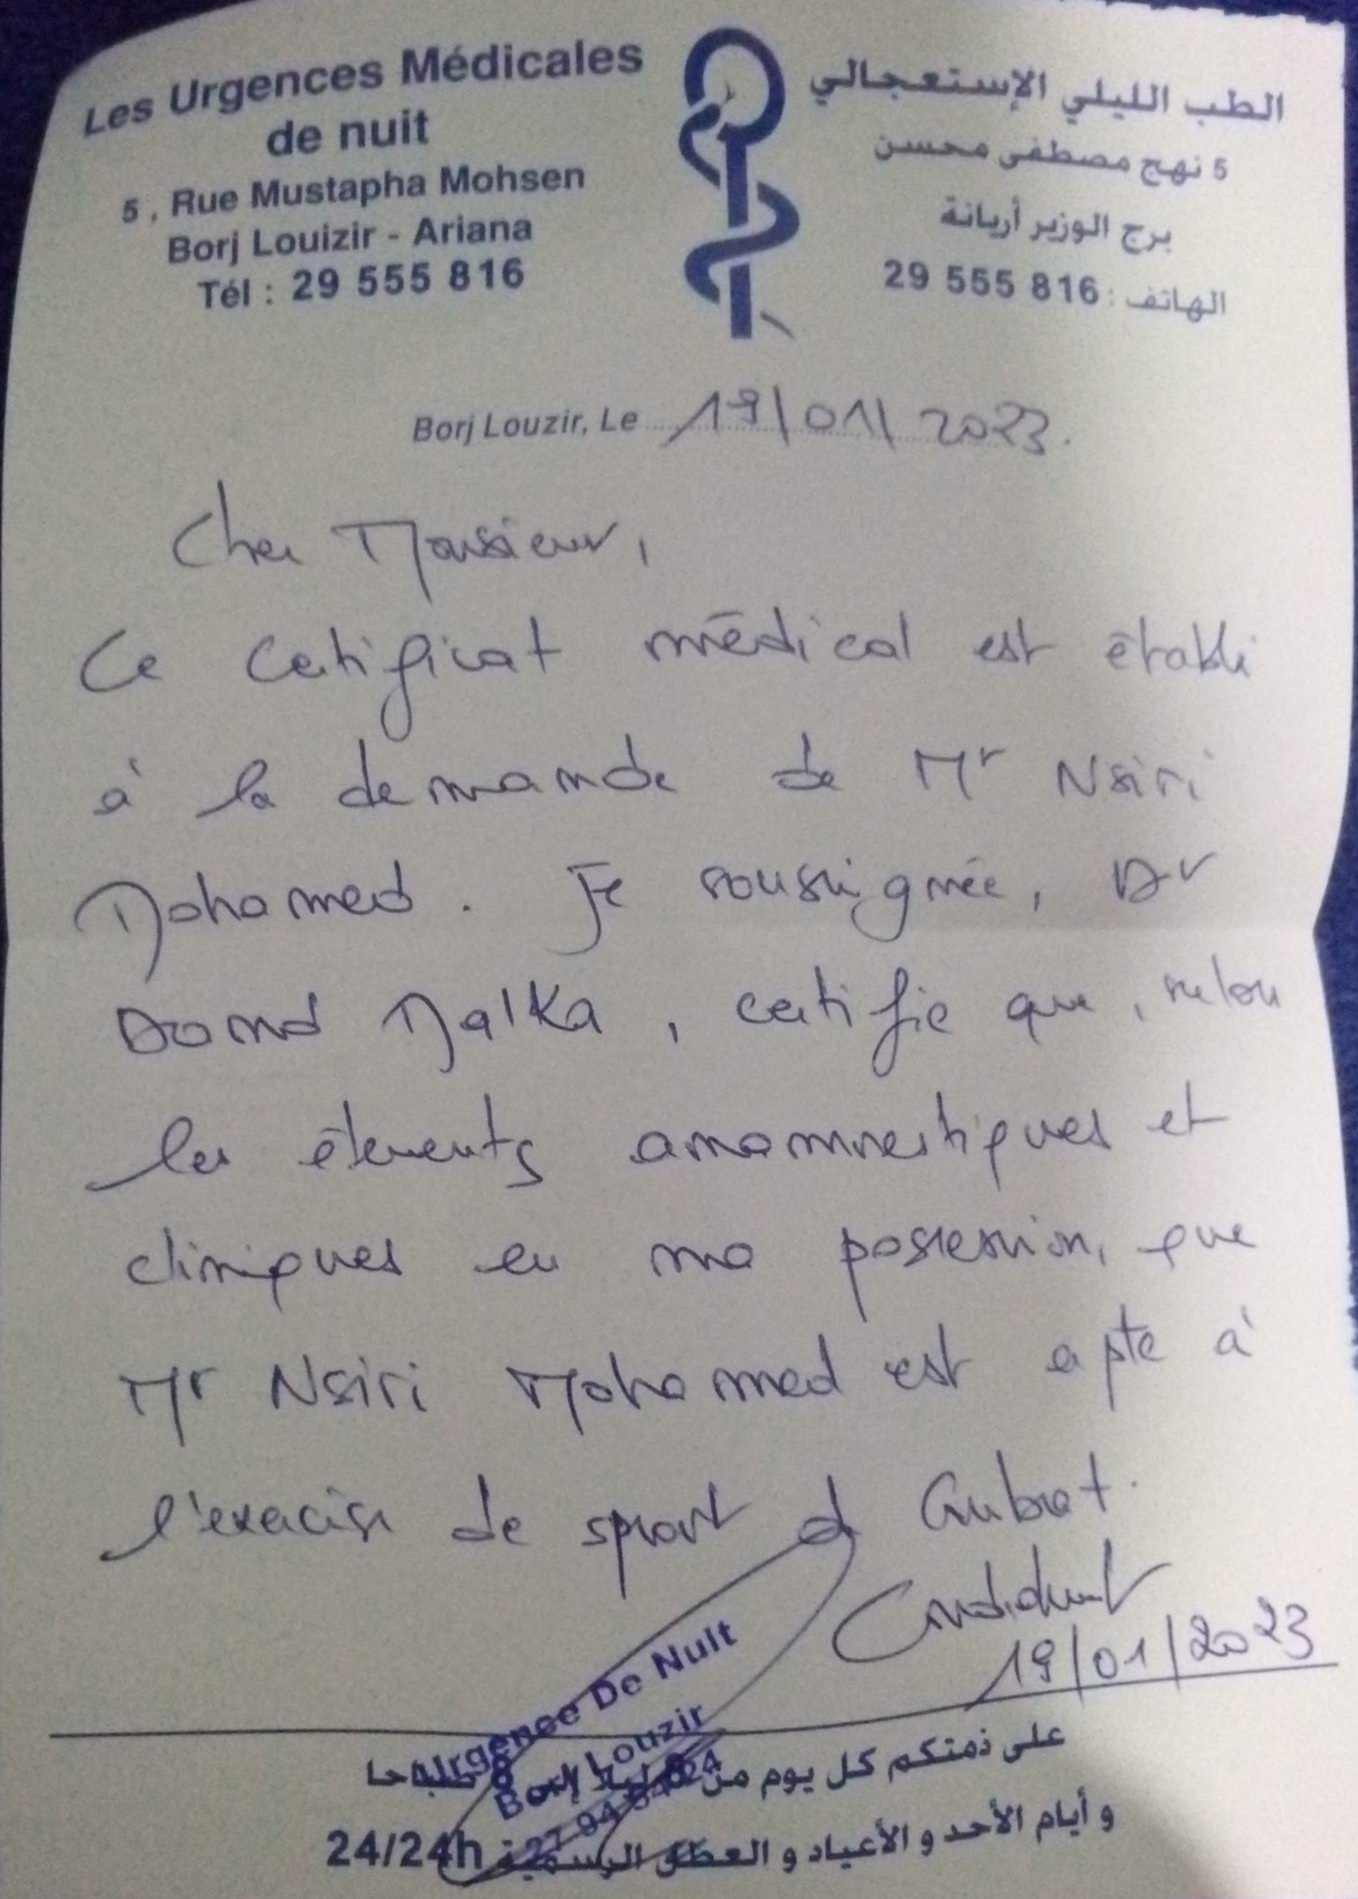 Les Urgences Médicales
de nuit
5, Rue Mustapha Mohsen
Borj Louizir - Ariana
Tél : 29 555 816
الطب الليلي الإستعجالي
5 نهج مصطفى محسن
برج الوزير أريانة
الهاتف : 29 555 816
Borj Louzir, Le 19/01/2023.
Cher Monsieur,
Ce certificat médical est établi
à la demande de Mr Nsiri
Mohamed. Je soussignée, Dr
Malka, certifie que, selon
les éléments anamnestiques et
cliniques en ma possession, que
Mr Nsiri Mohamed est apte à
l'exercice de sport d Combat.
19/01/2023
Urgence De Nuit
Borj Louzir
على ذمتكم كل يوم من ليلا إلى 8 صباحا
و أيام الأحد و الأعياد و العطل الرسمية 24/24h